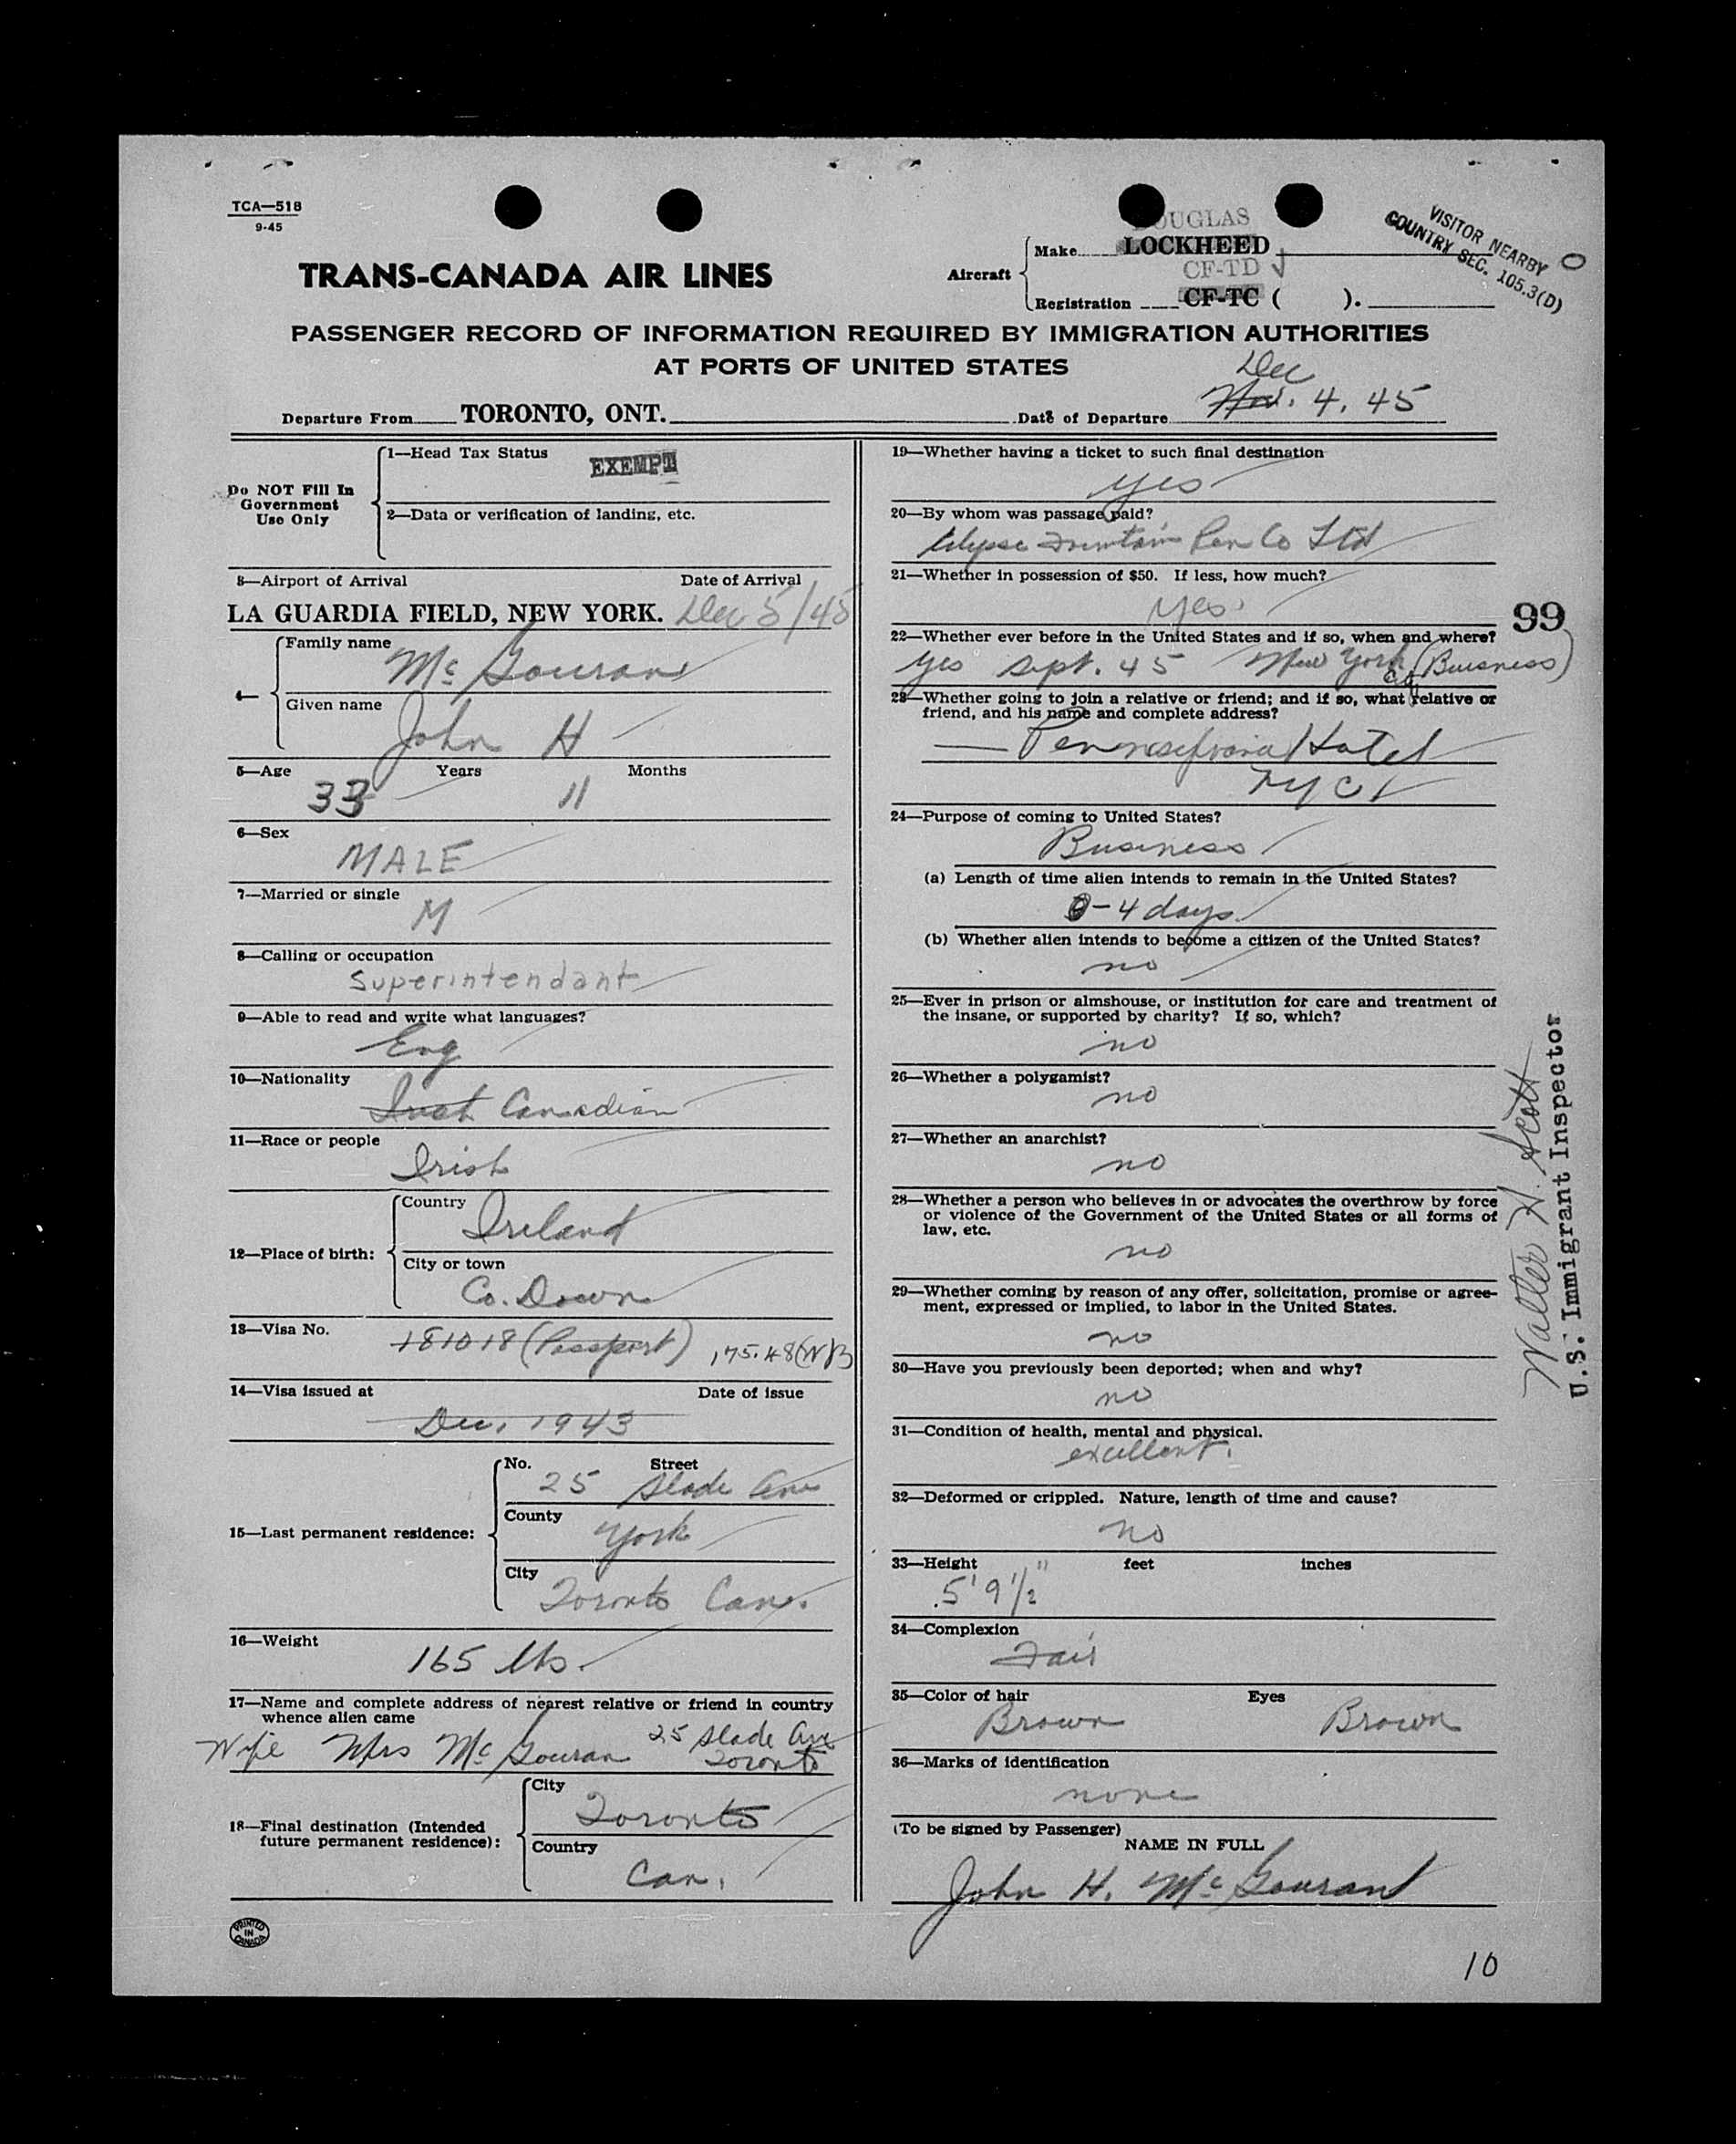 TCA—518
9-45
TRANS-CANADA AIR LINES
Aircraft
DOUGLAS
Make LOCKHEED
CF-TD
Registration CF-TC ( ).
VISITOR NEARBY
COUNTRY SEC. 105.3(D)
0
PASSENGER RECORD OF INFORMATION REQUIRED BY IMMIGRATION AUTHORITIES
AT PORTS OF UNITED STATES
Dec
Departure From TORONTO, ONT. Date of Departure Nov. 4, 45
Do NOT Fill In
Government
Use Only
1—Head Tax Status EXEMPT
2—Data or verification of landing, etc.
3—Airport of Arrival Date of Arrival
LA GUARDIA FIELD, NEW YORK. Dec 5/45
4—
Family name
Mc Gouran
Given name
John H
5—Age Years Months
33 11
6—Sex
MALE
7—Married or single
M
8—Calling or occupation
Superintendant
9—Able to read and write what languages?
Eng
10—Nationality
Irish Canadian
11—Race or people
Irish
12—Place of birth:
Country
Ireland
City or town
Co. Down
13—Visa No.
181018 (Passport) 175.48(W)B
14—Visa issued at Date of issue
Dec. 1943
15—Last permanent residence:
No. Street
25 Slade Ave
County
York
City
Toronto Can.
16—Weight
165 lbs.
17—Name and complete address of nearest relative or friend in country
whence alien came
Wife Mrs Mc Gouran 25 Slade Ave
Toronto
18—Final destination (Intended
future permanent residence):
City
Toronto
Country
Can.
PRINTED
IN
CANADA
19—Whether having a ticket to such final destination
yes
20—By whom was passage paid?
Fountain Pen Co Ltd
21—Whether in possession of $50. If less, how much?
yes.
99
22—Whether ever before in the United States and if so, when and where?
yes Sept. 45 New York City (Buisness)
23—Whether going to join a relative or friend; and if so, what relative or
friend, and his name and complete address?
— Pennsylvania Hotel
NYC
24—Purpose of coming to United States?
Business
(a) Length of time alien intends to remain in the United States?
-4 days
(b) Whether alien intends to become a citizen of the United States?
no
25—Ever in prison or almshouse, or institution for care and treatment of
the insane, or supported by charity? If so, which?
no
26—Whether a polygamist?
no
27—Whether an anarchist?
no
28—Whether a person who believes in or advocates the overthrow by force
or violence of the Government of the United States or all forms of
law, etc.
no
29—Whether coming by reason of any offer, solicitation, promise or agree-
ment, expressed or implied, to labor in the United States.
no
30—Have you previously been deported; when and why?
no
31—Condition of health, mental and physical.
excellent.
32—Deformed or crippled. Nature, length of time and cause?
no
33—Height feet inches
5' 9 1/2"
34—Complexion
Fair
35—Color of hair Eyes
Brown Brown
36—Marks of identification
none
(To be signed by Passenger)
NAME IN FULL
John H. Mc Gouran
Walter H. Scott
U.S. Immigrant Inspector
10